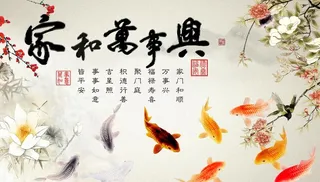 家和萬事興
家门和顺
万事兴
福禄寿喜
聚门庭
积德行善
吉星照
事事如意
皆平安